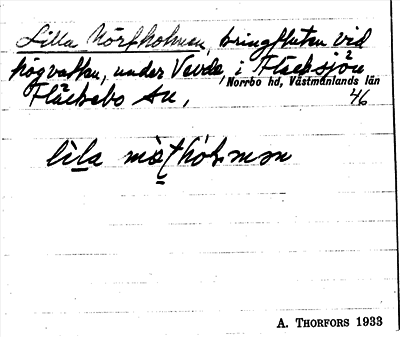 Lilla Mörtholmen, kringfluten vid
högvatten, under Vevde, i Fläcksjön
Norrbo hd, Västmanlands län
Fläckebo sn, 4/6
lila mört hòlmen
A. THORFORS 1933